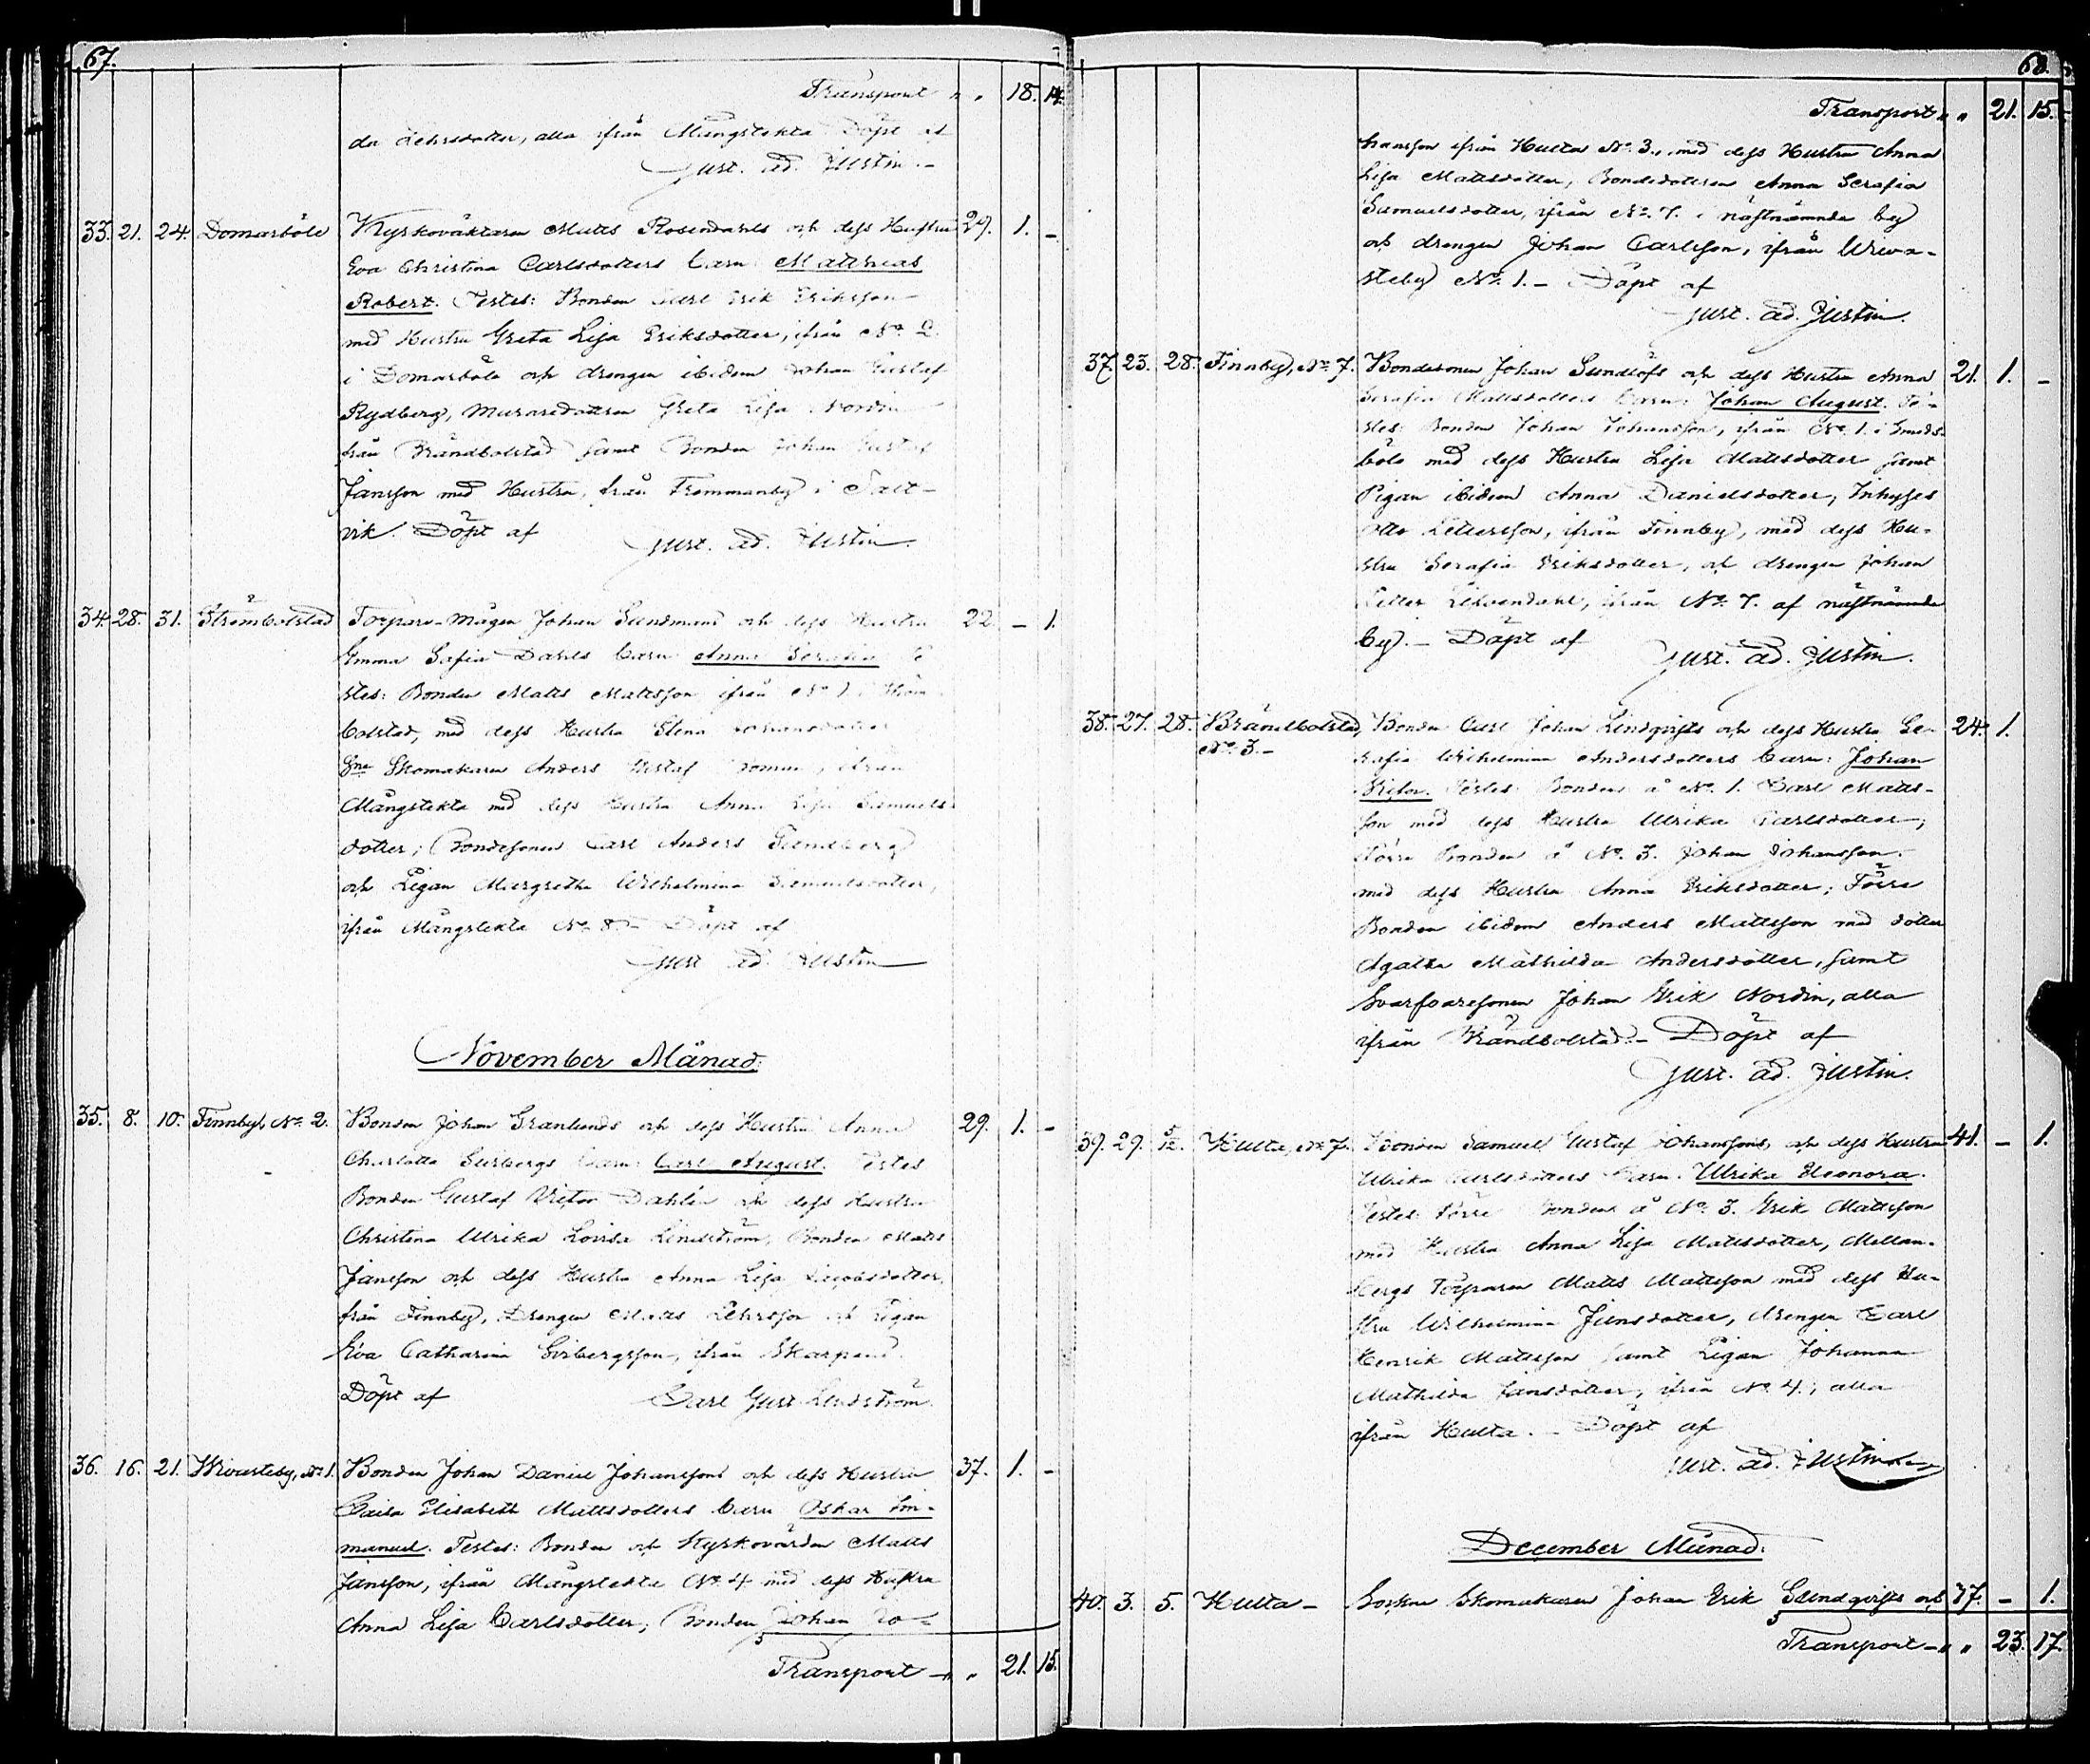 67.
Transport „ „ 18. 14.
da Pehrsdotter, alla ifrån Mångstekta Döpt af
Gust. ad. Justin.-
33. 21. 24. Domarböle Kyrkoväktaren Matts Rosendahls och dess Hustru 29. 1. -
Eva Christina Carlsdotters barn Matthias
Robert. Testes: Bonden Carl Erik Eriksson
med Hustru Greta Lisa Eriksdotter, ifrån No 2.
i Domarböle och drengen ibidem Johan Gustaf
Rydberg, Muraredottren Greta Lisa Nordin
från Brändbolstad samt Bonden Johan Gustaf
Jansson med Hustru, från Frommanby i Salt-
vik. Döpt af Gust. ad. Justin.
34. 28. 31. Strömbolstad Torpare-Mågen Johan Sundmans och dess Hustru 22. - 1.
Emma Safia Dahls barn Anna Serafia Te
stes: Bonden Matts Mattsson ifrån No 1 i Ström
bolstad, med dess Hustru Stina Johansdotter
Gne Skomakaren Anders Gustaf Broman, ifrån
Mångstekta med dess Hustru Anna Lisa Samuels-
dotter; Bondesonen Carl Anders
och Pigan Margretha Wilhelmina Samuelsdotter,
ifrån Mångstekta No 8.- Döpt af
Gust ad. Justin
November Månad.
35. 8. 10. Finnby, No 2. Bonden Johan Granlunds och dess Hustru Anna 29. 1. -
Charlotta barn Carl August. Testes
Bonden Gustaf Victor Dahlén och dess Hustru
Christina Ulrika Lovisa Lindström, Bonden Matts
Jansson och dess Hustru Anna Lisa Jacobsdotter,
från Finnby, Drengen Matts Pehrsson och Pigan
Eva Catharina ifrån Skarpans.
Döpt af Carl Gust. Lindström.
36. 16. 21. No 1. Bonden Johan Daniel Johanssons och dess Hustru 37. 1. -
Caisa Elisabeth Mattsdotters barn Oskar Em-
manuel. Testes: Bonden och Kyrkovärden Matts
Jansson, ifrån Mångstekta No 4 med dess Hustru
Anna Lisa Carlsdotter, Bonden Johan Jo-
Transport - „ „ 21. 15.
68.
Transport „ „ 21. 15.
hansson ifrån Hulta No 3., med dess Hustru Anna
Lisa Mattsdotter, Bondedottren Anna Serafia
Samuelsdotter, ifrån No 7. i näst­nämnde by
och drengen Johan Carlsson, ifrån
steby No 1.- Döpt af
Gust. ad. Justin.
37. 23. 28. Finnby, No 7. Bondesonen Johan Sundlöfs och dess Hustru Anna 21. 1. -
Serafia Mattsdotters barn: Johan August. Te-
stes: Bonden Johan Johansson, ifrån No 1. i Smeds-
böle med dess Hustru Lisa Mattsdotter samt
Pigan ibidem Anna Danielsdotter, Inhyses
Otto Pettersson, ifrån Finnby, med dess Hu-
stru Serafia Eriksdotter, och drengen Johan
Petter ifrån No 7. af nästnämnde
by.- Döpt af Gust. ad. Justin.
38. 27. 28. Brändbolstad, Bonden Carl Johan Lindqvists och dess Hustru Se- 24. 1.
No 3.- rafia Wilhelmina Andersdotters barn: Johan
Victor. Testes: Bonden å No 1. Carl Matts-
son med dess Hustru Ulrika Carlsdotter,
Förre Bonden å No 3. Johan Johansson
med dess Hustru Anna Eriksdotter; Förre
Bonden ibidem Anders Mattsson med dotter
Agatha Mathilda Andersdotter, samt
Svarfvaresonen Johan Erik Nordin, alla
ifrån Brändbolstad.- Döpt af
Gust. ad. Justin.
39. 29. 5/12. Hulta, No 7. Bonden Samuel Gustaf Johanssons och dess Hustru 41. - 1.
Ulrika Carlsdotters barn. Ulrika Eleonora.
Testes: Förre Bonden å No 3. Erik Mattsson
med Hustru Anna Lisa Mattsdotter, Mellan-
bergs Torparen Matts Mattsson med dess Hu-
stru Wilhelmina Jansdotter, drengen Carl
Henrik Mattsson samt Pigan Johanna
Mathilda Jansdotter, ifrån No 4., alla
ifrån Hulta.- Döpt af
Gust. ad. Justin
December Månad.
40. 3. 5. Hulta - Sockne Skomakaren Johan Erik och 37. - 1.
Transport - „ „ 23. 17.